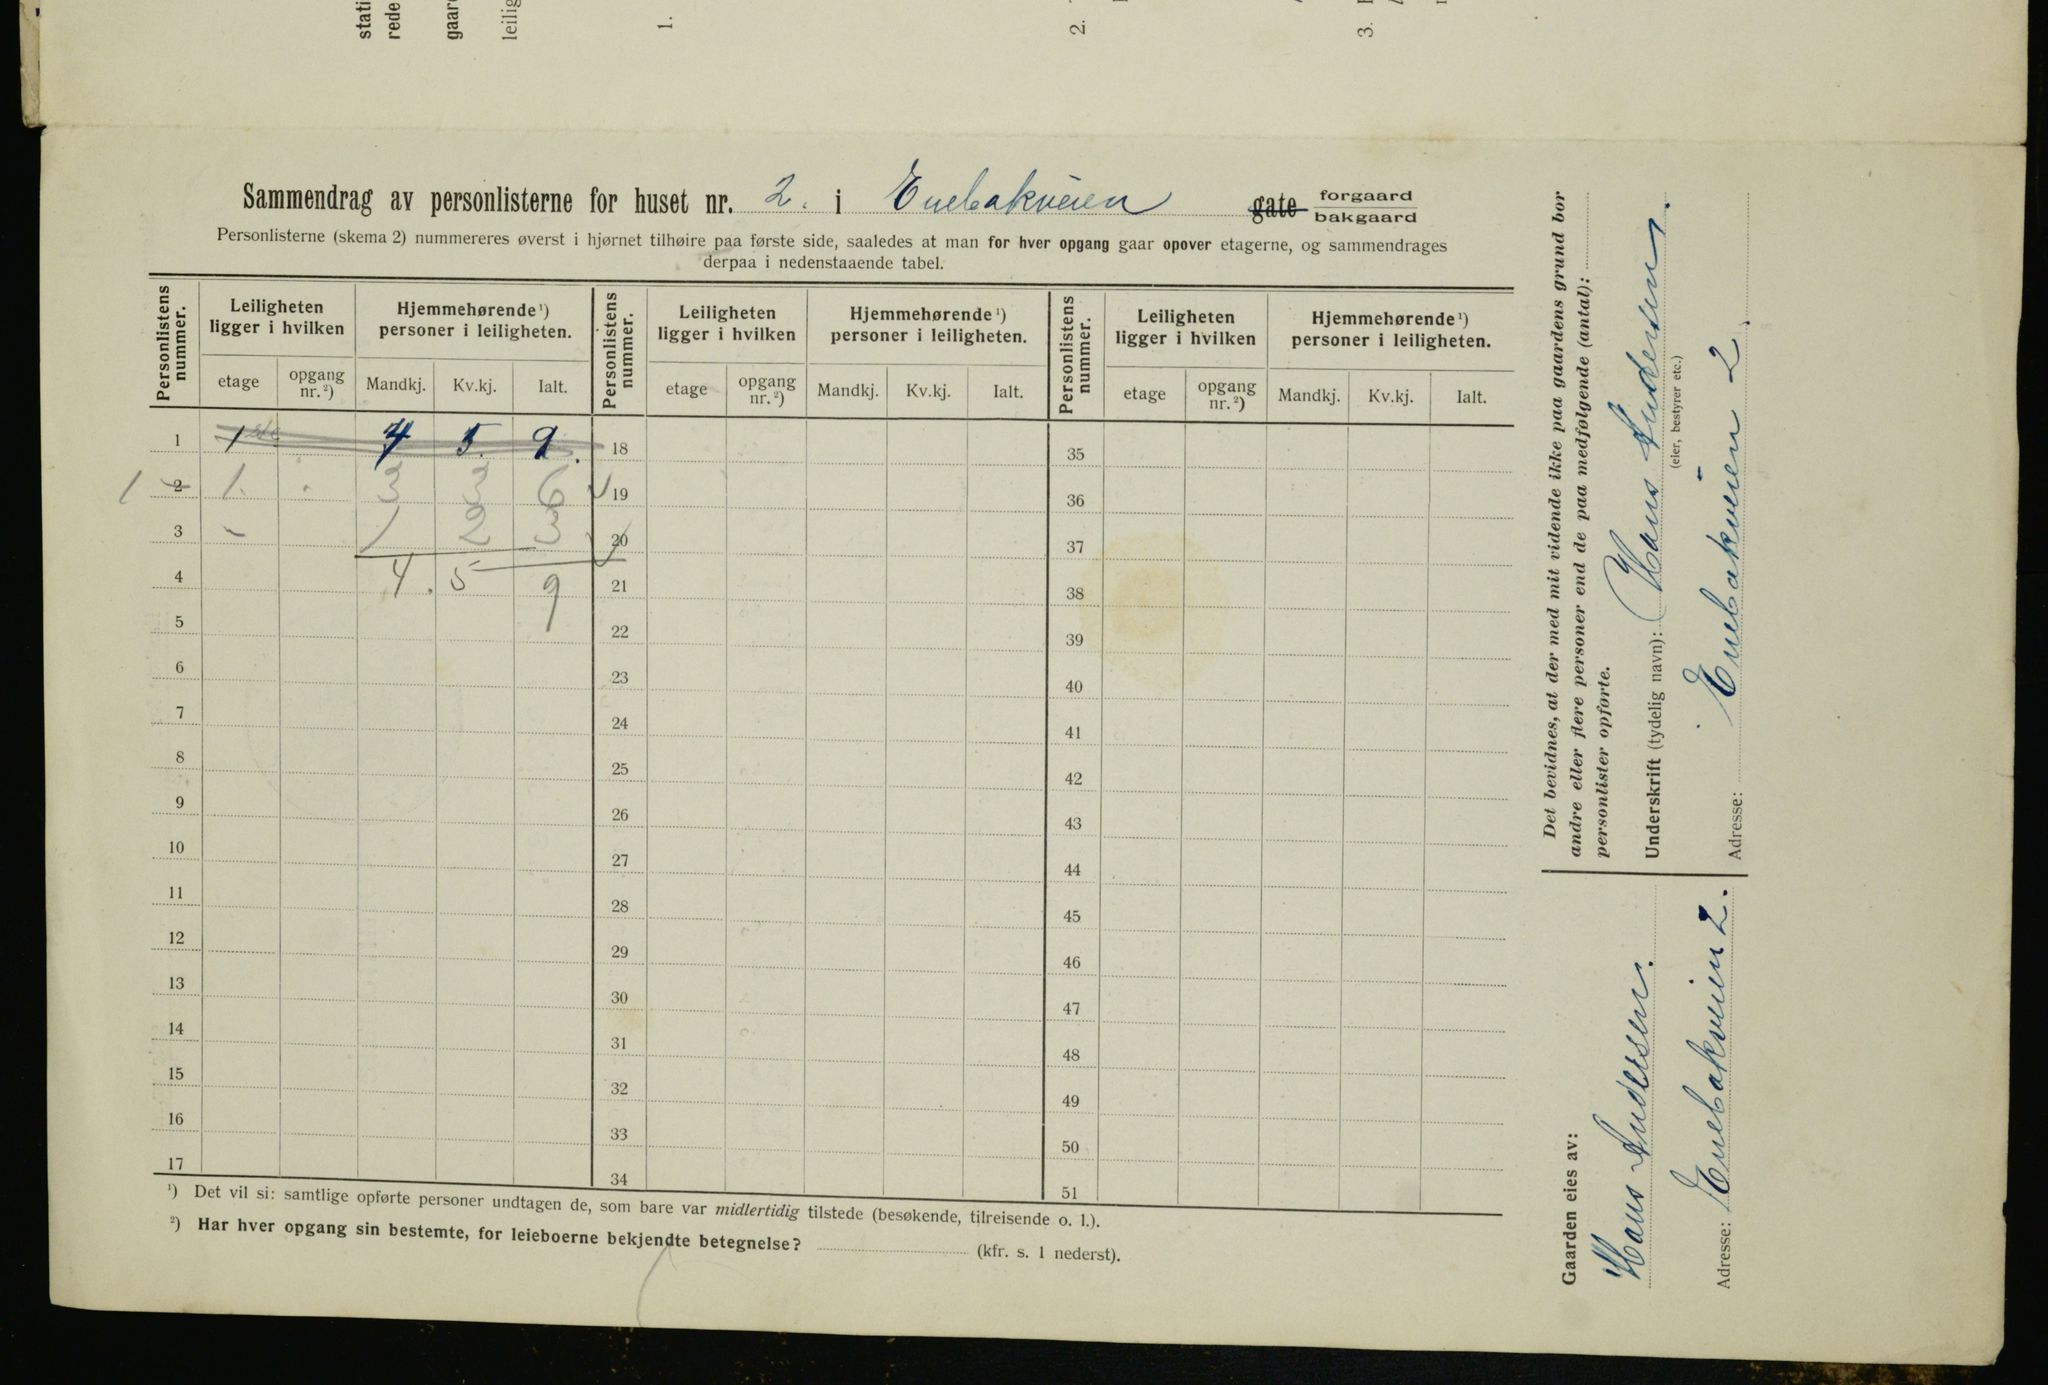 stati
rede
gaar
leilig
1.
2.
3.
Sammendrag av personlisterne for huset nr. 2. i Enebakveien gate forgaard bakgaard
Personlisterne (skema 2) nummereres øverst i hjørnet tilhøire paa første side, saaledes at man for hver opgang gaar opover etagerne, og sammendrages
derpaa i nedenstaaende tabel.
Personlistens nummer. Leiligheten ligger i hvilken Hjemmehørende ¹) personer i leiligheten. Personlistens nummer. Leiligheten ligger i hvilken Hjemmehørende ¹) personer i leiligheten. Personlistens nummer. Leiligheten ligger i hvilken Hjemmehørende ¹) personer i leiligheten.
etage opgang nr. ²) Mandkj. Kv.kj. Ialt. etage opgang nr. ²) Mandkj. Kv.kj. Ialt. etage opgang nr. ²) Mandkj. Kv.kj. Ialt.
1 1 ste 4 5. 9. 18 35
1 2 1. 3 3 6 19 36
3 - 1 2 3 20 37
4 4. 5 9 21 38
5 22 39
6 23 40
7 24 41
8 25 42
9 26 43
10 27 44
11 28 45
12 29 46
13 30 47
14 31 48
15 32 49
16 33 50
17 34 51
¹) Det vil si: samtlige opførte personer undtagen de, som bare var midlertidig tilstede (besøkende, tilreisende o. l.).
²) Har hver opgang sin bestemte, for leieboerne bekjendte betegnelse? (kfr. s. 1 nederst).
Det bevidnes, at der med mit vidende ikke paa gaardens grund bor
andre eller flere personer end de paa medfølgende (antal):
personlister opførte.
Underskrift (tydelig navn): Hans Andersen.
(eier, bestyrer etc.)
Adresse: Enebakveien 2.
Gaarden eies av:
Hans Andersen.
Adresse: Enebakveien 2.